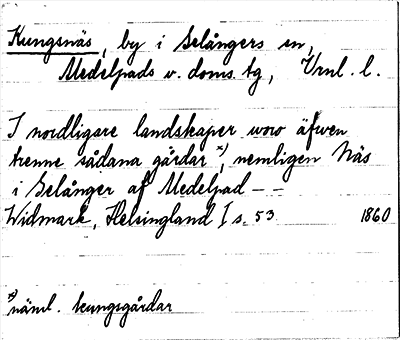 Kungsnäs, by i Selångers sn,
Medelpads v. doms. tg, Vrnl. l.
I nordligare landskaper woro äfwen
trenne sådana gårdar x), nemligen Näs
i Selånger af Medelpad – –
Widmark, Helsingland I s. 53 1860
x) näml. kungsgårdar